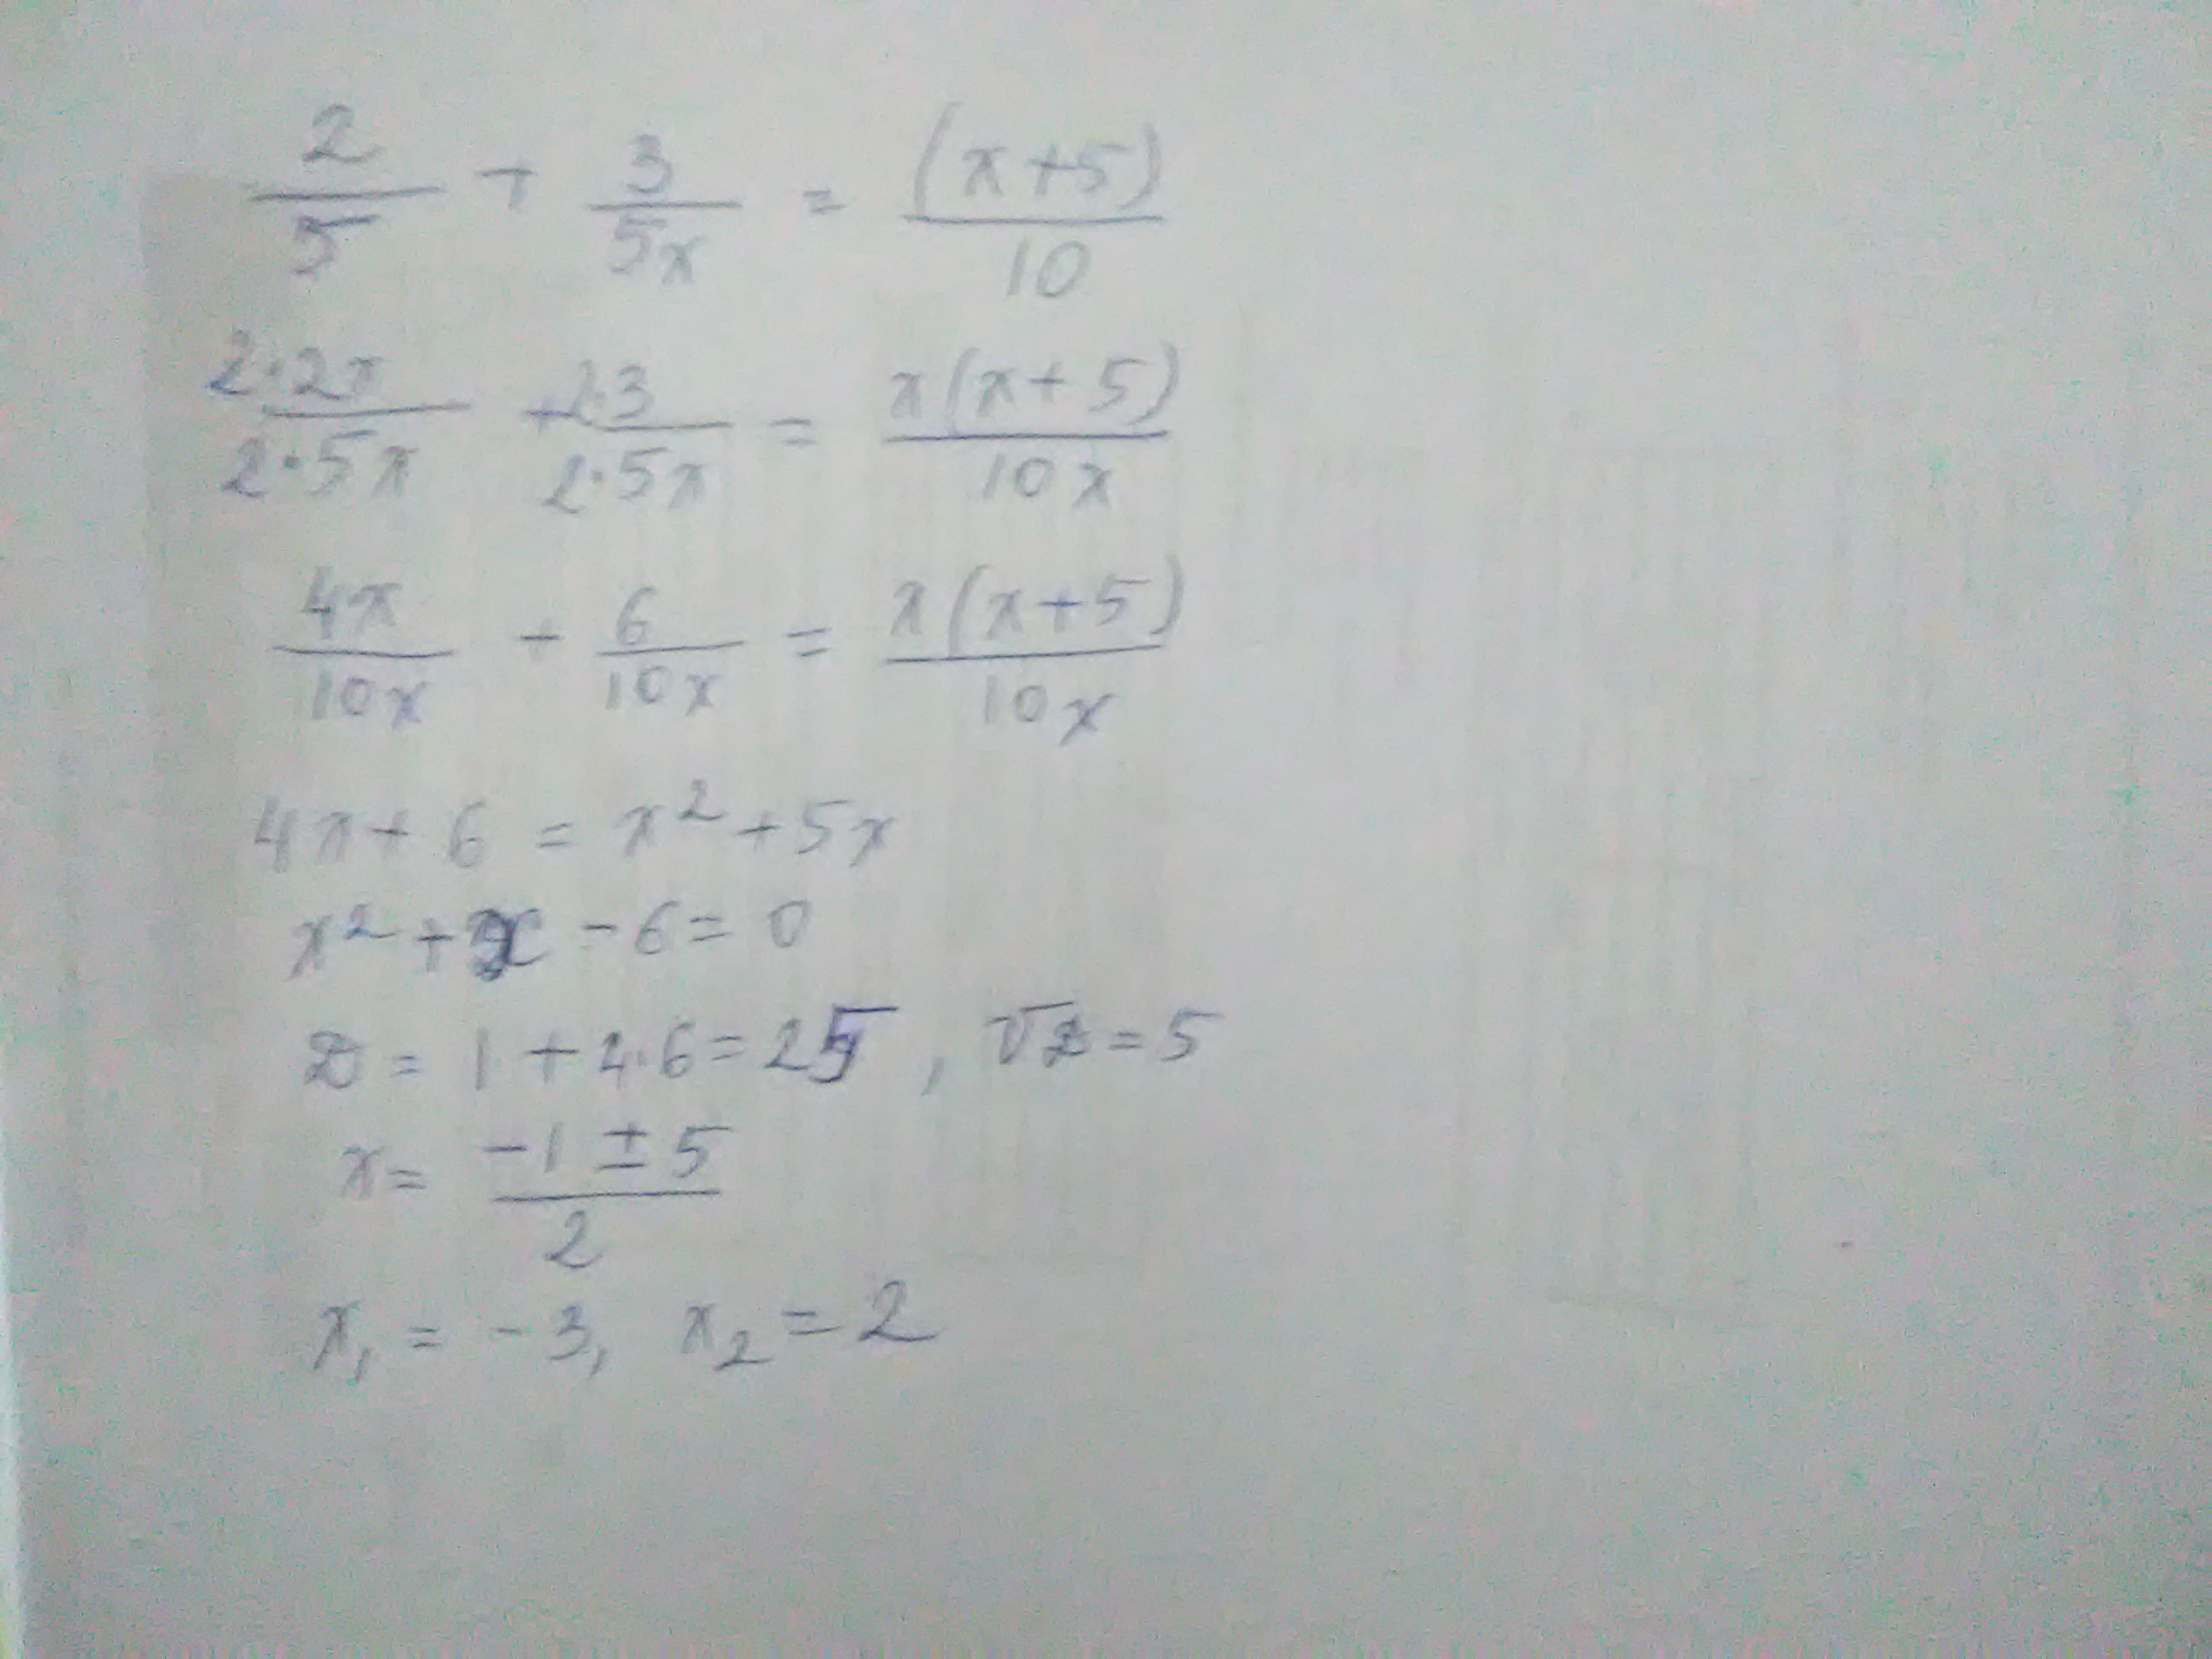 2/5 + 3/5x = (x+5)/10
2·2x/2·5x + 2·3/2·5x = x(x+5)/10x
4x/10x + 6/10x = x(x+5)/10x
4x + 6 = x² + 5x
x² + x - 6 = 0
D = 1 + 4·6 = 25, √D = 5
x = -1 ± 5/2
x₁ = -3, x₂ = 2